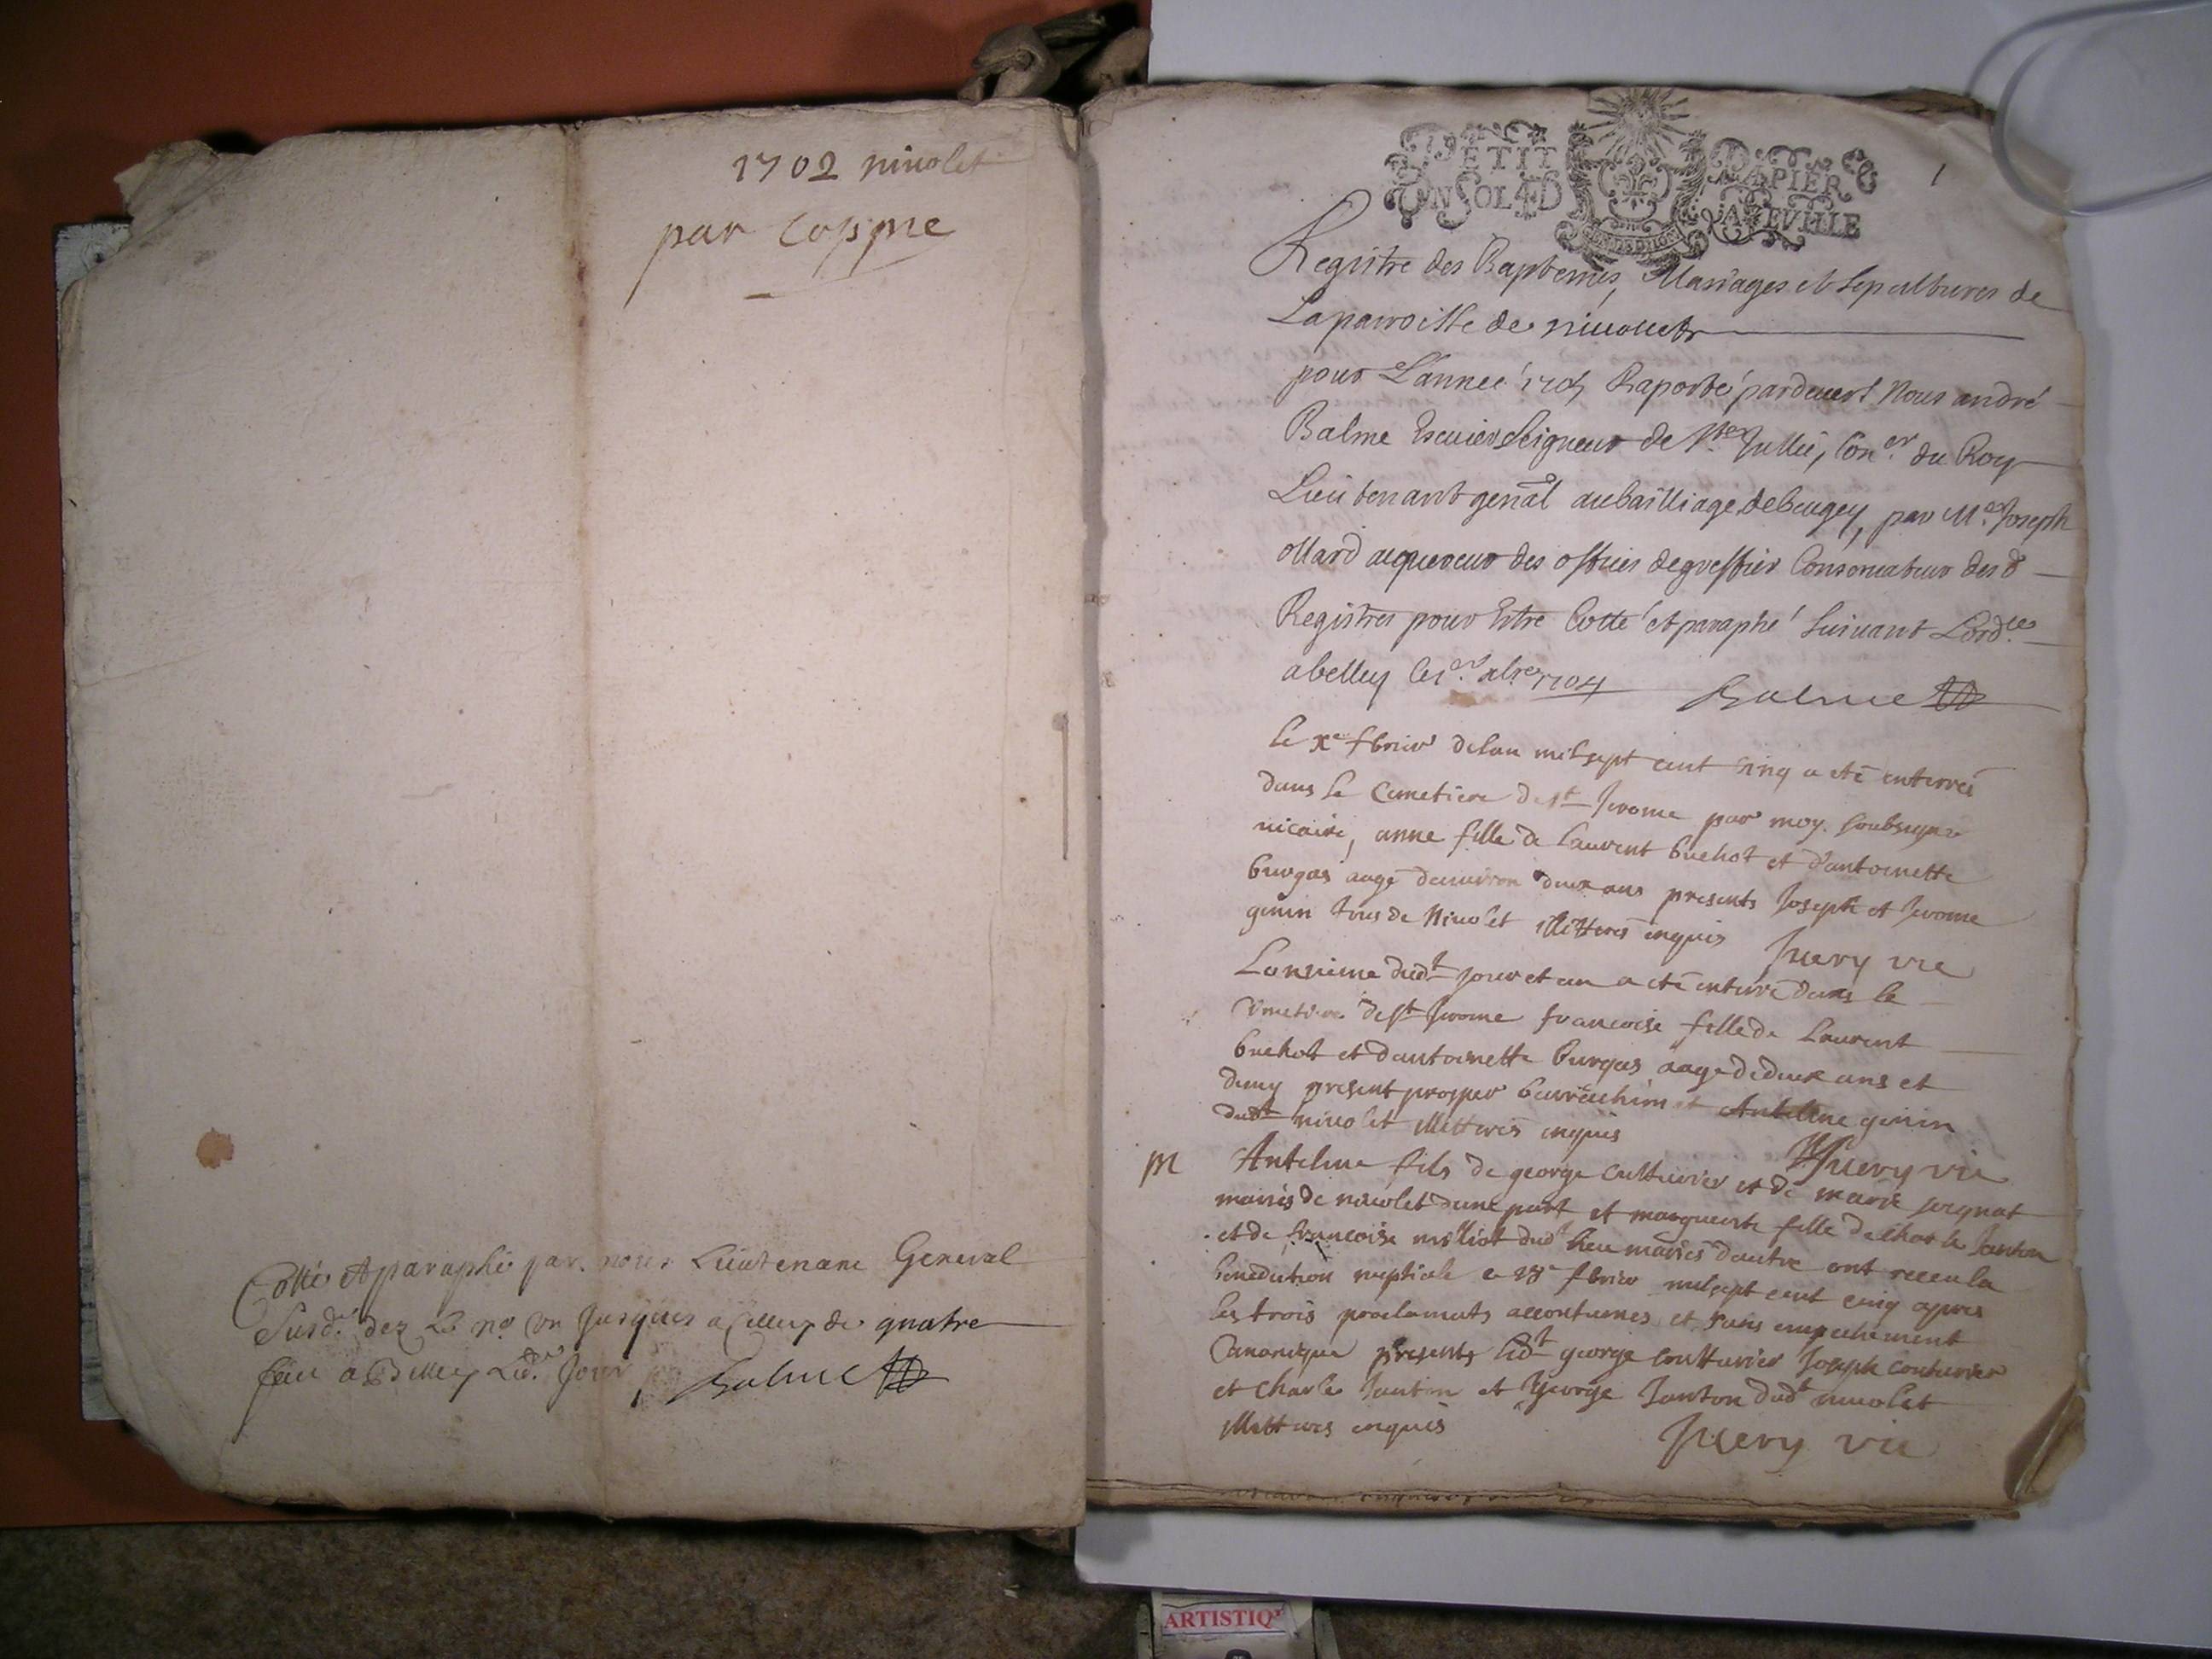 1702 niuolet
par coppie
Cotté et paraphé par nous Lieutenant General
Susd. dez Le no. Un Jusques a celluy de quatre
fait a Belley Led. Jour Balme
1
PETIT PAPIER
UN SOL 4D LA FEVILLE
GEN DE DIION
Registre des Baptemes, Mariages et Sepultures de
La parroisse de niuollet
pour L'année 1705 Raporté pardeuert Nous andré
Balme Escuier Seigneur de Ste Jullie, Coner. du Roy
Lieutenant genãl au bailliage de beugey, par Me Joseph
ollard acquereur des offices de greffier Conseruateur des d
Registres pour Estre Cotté et paraphé Suiuant L'ordce
a belley le 1er xbre 1704 Balme
Le xe fbrier de lan mil sept cent cinq a eté enterreé
dans le Cemetiere de st Jerome par moy soubsigné
vicaire, anne fille de Laurent buchot et d'antoinette
burgas aagé denuiron deux ans presents Joseph et Jerome
genin tous de Niuolet illitterés enquis Juery vic
Lonzieme dudt jour et an a eté enterré dans le
Cemetiere de st Jerome francoise fille de Laurent
buchot et dantoinette burgas aagé de deux ans et
demy present prosper et Antelme genin
dudt niuolet illitterés enquis
Juery vic
m Antelme fils de george cutturier et de marie
mariés de niuolet dune part et marguerite fille de charle Janton
et de francoise milliot dud lieu mariés dautre ont receu la
benediction nuptiale le fbrier mil sept cent cinq apres
les trois proclamats accoutumés et sans empechement
Canonique presents ledt george coutturier Joseph couturier
et Charle Jantin et george Janton dudt niuolet
illitteres enquis Juery vic
ARTISTIQ